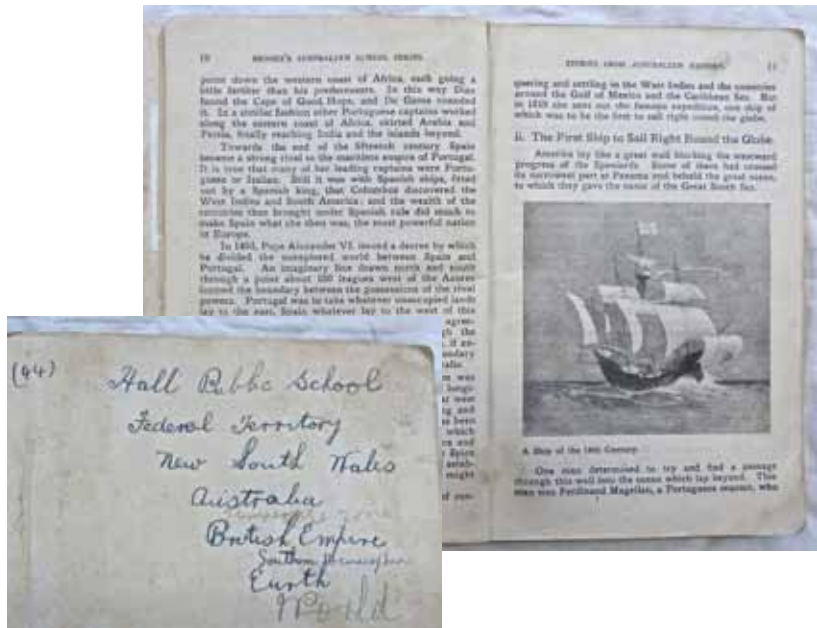 10 BROOKS'S AUSTRALIAN SCHOOL SERIES.
point down the western coast of Africa, each going a
little farther than his predecessors. In this way Diaz
found the Cape of Good Hope, and De Gama rounded
it. In a similar fashion other Portuguese captains worked
along the eastern coast of Africa, skirted Arabia and
Persia, finally reaching India and the islands beyond.
Towards the end of the fifteenth century Spain
became a strong rival to the maritime empire of Portugal.
It is true that many of her leading captains were Portu-
guese or Italian. Still it was with Spanish ships, fitted
out by a Spanish king, that Columbus discovered the
West Indies and South America; and the wealth of the
countries thus brought under Spanish rule did much to
make Spain what she then was, the most powerful nation
in Europe.
In 1493, Pope Alexander VI. issued a decree by which
he divided the unexplored world between Spain and
Portugal. An imaginary line drawn north and south
through a point about 100 leagues west of the Azores
formed the boundary between the possessions of the rival
powers. Portugal was to take whatever unoccupied lands
lay to the east, Spain whatever lay to the west of this
agree-
the
if
was
west
and
been
which
and
Spice
might
of
STORIES FROM AUSTRALIAN HISTORY. 11
quering and settling in the West Indies and the countries
around the Gulf of Mexico and the Caribbean Sea. But
in 1519 she sent out the famous expedition, one ship of
which was to be the first to sail right round the globe.
ii. The First Ship to Sail Right Round the Globe.
America lay like a great wall blocking the westward
progress of the Spaniards. Some of them had crossed
its narrowest part at Panama and beheld the great ocean,
to which they gave the name of the Great South Sea.
A Ship of the 16th Century.
One man determined to try and find a passage
through this wall into the ocean which lay beyond. This
man was Ferdinand Magellan, a Portuguese seaman, who
(44)
Hall Public School
Federal Territory
New South Wales
Australia
zone
British Empire
Southern Hemisphere
Earth
World